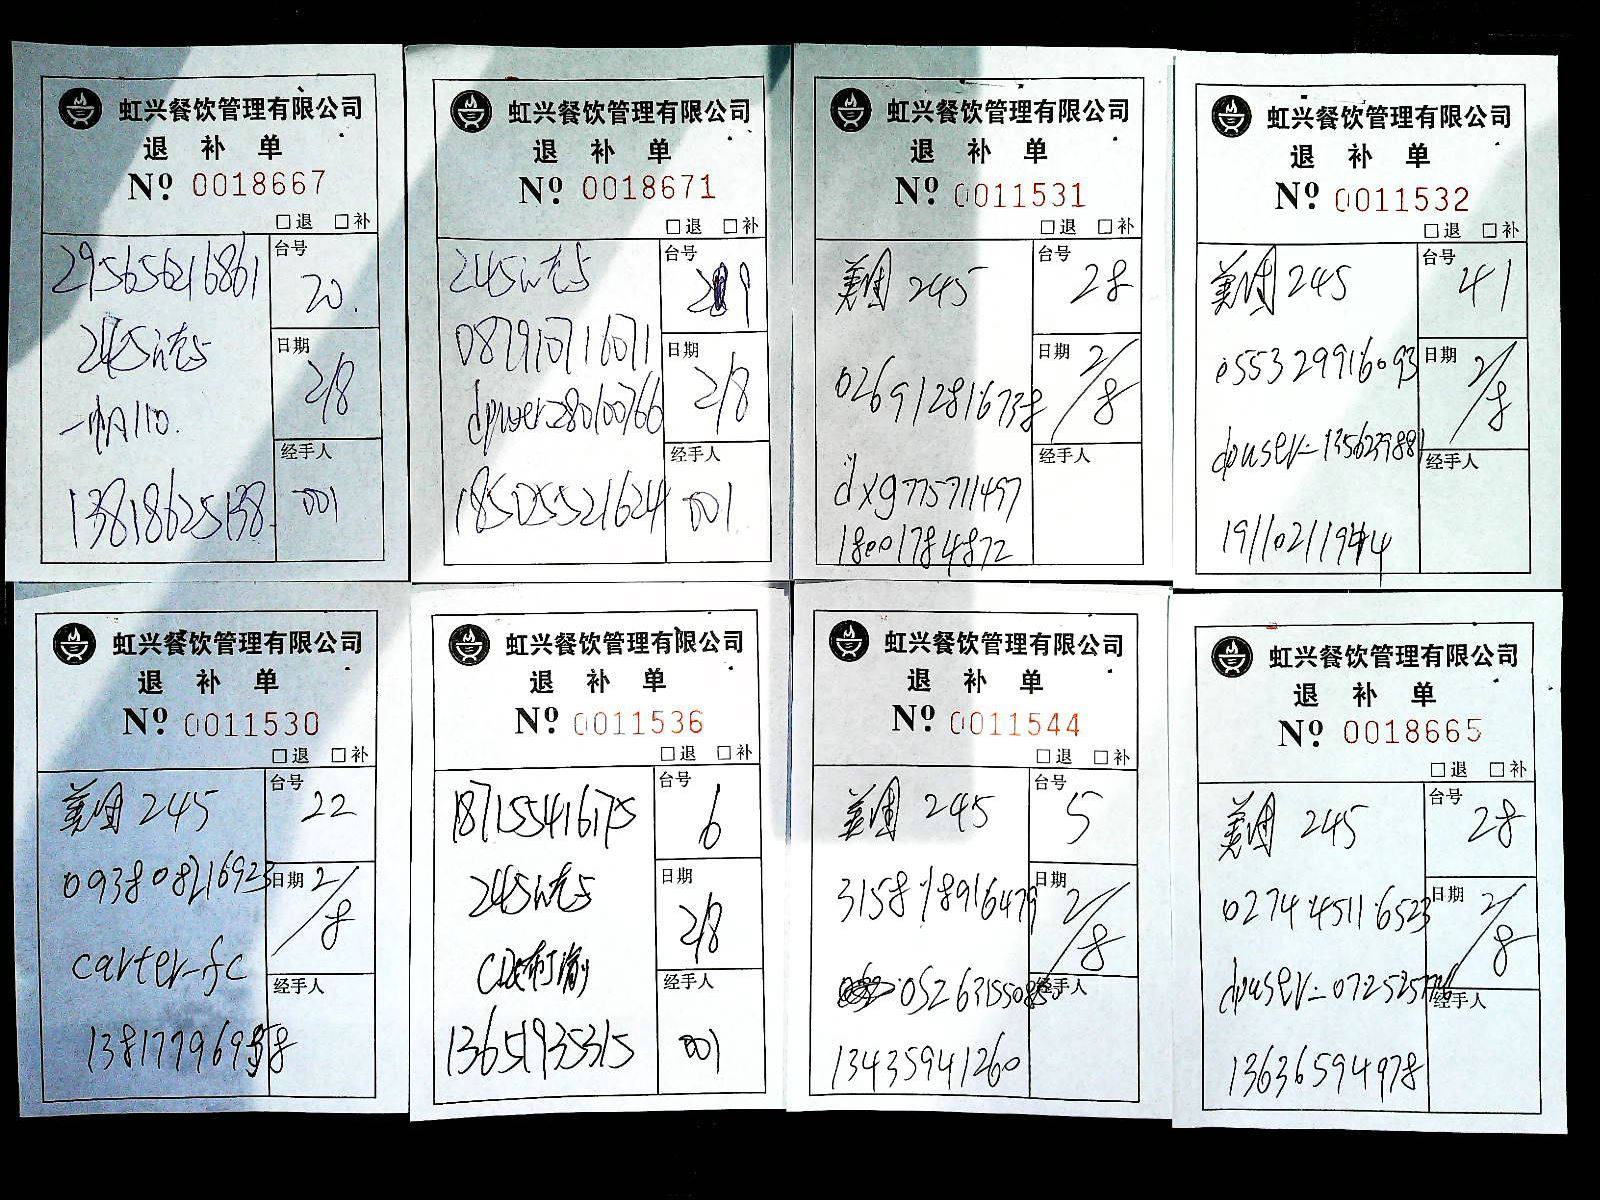 虹兴餐饮管理有限公司
退 补 单
Nº 0018667
□退 □补
295656216861
台号
20.
245
日期
2/8
一帆110.
经手人
13818625138
001
虹兴餐饮管理有限公司
退 补 单
Nº 0018671
□退 □补
245
台号
087910716071
日期
2/8
dpuser280100766
经手人
185025521624
001
虹兴餐饮管理有限公司
退 补 单
Nº 0011531
□退 □补
美团 245
台号
28
026912816738
日期
2/8
经手人
dxg775711497
18001784872
虹兴餐饮管理有限公司
退 补 单
Nº 0011532
□退 □补
美团 245
台号
41
055329916093
日期
2/8
经手人
19110211944
虹兴餐饮管理有限公司
退 补 单
Nº 0011530
□退 □补
美团 245
台号
22
093808216923
日期
2/8
carter-fc
经手人
虹兴餐饮管理有限公司
退 补 单
Nº 0011536
□退 □补
187155416175
台号
6
245
日期
2/8
经手人
13651935315
001
虹兴餐饮管理有限公司
退 补 单
Nº 0011544
□退 □补
美团 245
台号
5
315818916479
日期
2/8
经手人
13435941260
虹兴餐饮管理有限公司
退 补 单
Nº 0018665
□退 □补
美团 245
台号
28
027445116523
日期
2/8
经手人
13636594978